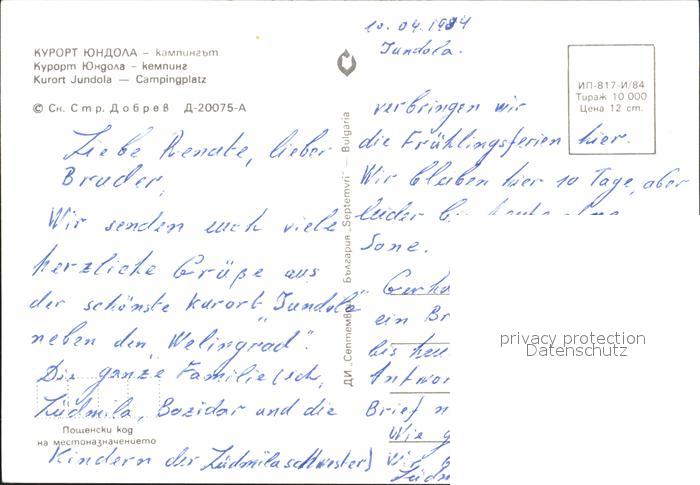 КУРОРТ ЮНДОЛА – кампингът
Курорт Юндола – кемпинг
Kurort Jundola — Campingplatz
© Сн. Стр. Добрев Д-20075-А
Liebe Renate, lieber
Bruder,
Wir senden euch viele
herzliche Grüße aus
der schönste Kurort "Jundola"
neben den "Welingrad".
Die ganze Familie (ich,
Lüdmila, Bozidar und die
Пощенски код
на местоназначението
Kindern der Lüdmilaschwester)
ДИ „Септември" България „Septemvri" — Bulgaria
10.04.1984
Jundola.
ИП-817-И/84
Тираж 10 000
Цена 12 cm.
verbringen wir
die Frühlingsferien hier.
Wir bleiben hier 10 Tage, aber
leider
Sone.
ein Br
bis heu
Antwor
Brief n
Wie g
Wir
Lüdm
privacy protection
Datenschutz